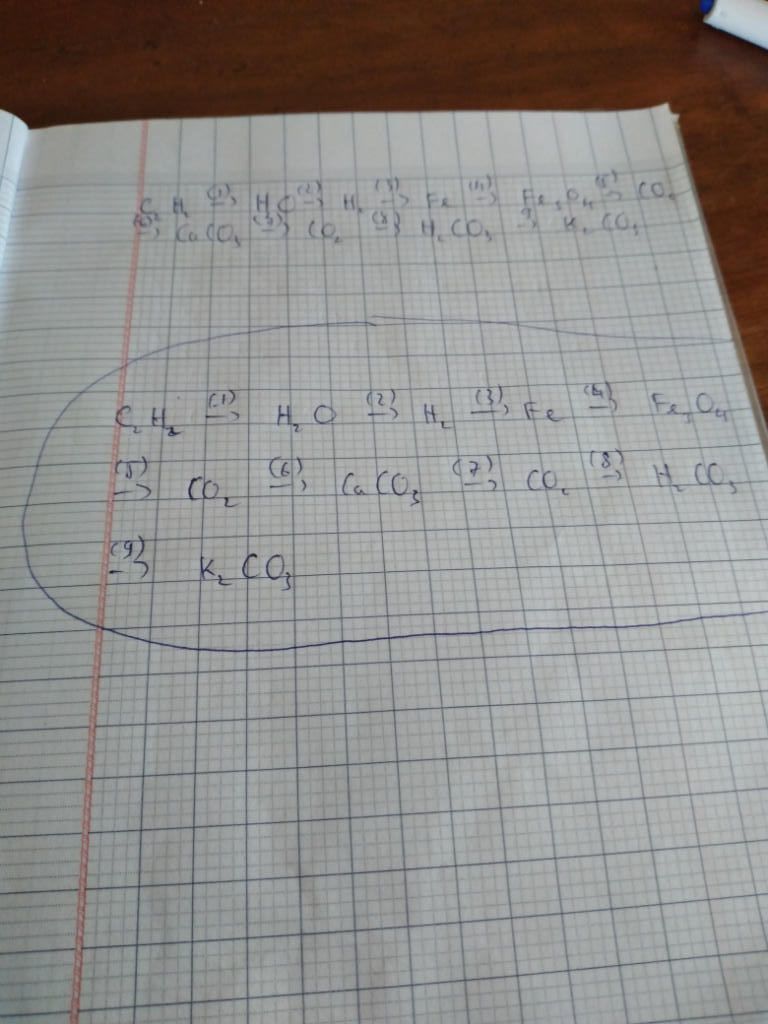 C₂ H₂ (1)→ H₂O (2)→ H₂ (3)→ Fe (4)→ Fe₃O₄ (5)→ CO₂
(6)→ CaCO₃ (7)→ CO₂ (8)→ H₂CO₃ 9→ K₂CO₃
C₂H₂ (1)→ H₂O (2)→ H₂ (3)→ Fe (4)→ Fe₃O₄
(5)→ CO₂ (6)→ CaCO₃ (7)→ CO₂ (8)→ H₂CO₃
(9)→ K₂CO₃